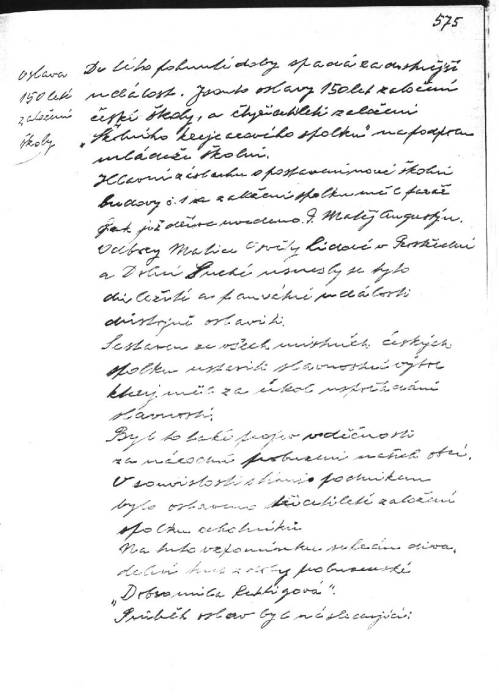 575
Oslava
150 letí
založení
školy
Do této pohnuté doby spadá zádušnější
událost. Jsou to oslavy 150 let založení
české školy, a čtyřicítiletí založení
„Školního krejcarového spolku" na podporu
mládeže školní.
Hlavní zásluhu o postavení nové školní
budovy č. 1 a založení spolku měl farář
jak již dříve uvedeno P. Matěj Augustýn.
Odbory Matice Osvěty Lidové v Prostřední
a Dolní Suché usnesly se tyto
důležité a památné události
důstojně oslaviti.
Sestaven ze všech místních českých
spolků ustavili slavnostní výbor
který měl za úkol uspořádání
slavnosti.
Byl to také projev vděčnosti
za národní probuzení našich obcí.
V souvislosti s tímto podnikem
bylo oslaveno třicítiletí založení
spolku ochotníků.
Na tuto vzpomínku sehrán diva-
delní kus z doby probuzenské
„Dobromila Rettigová".
Průběh oslav byl následující: